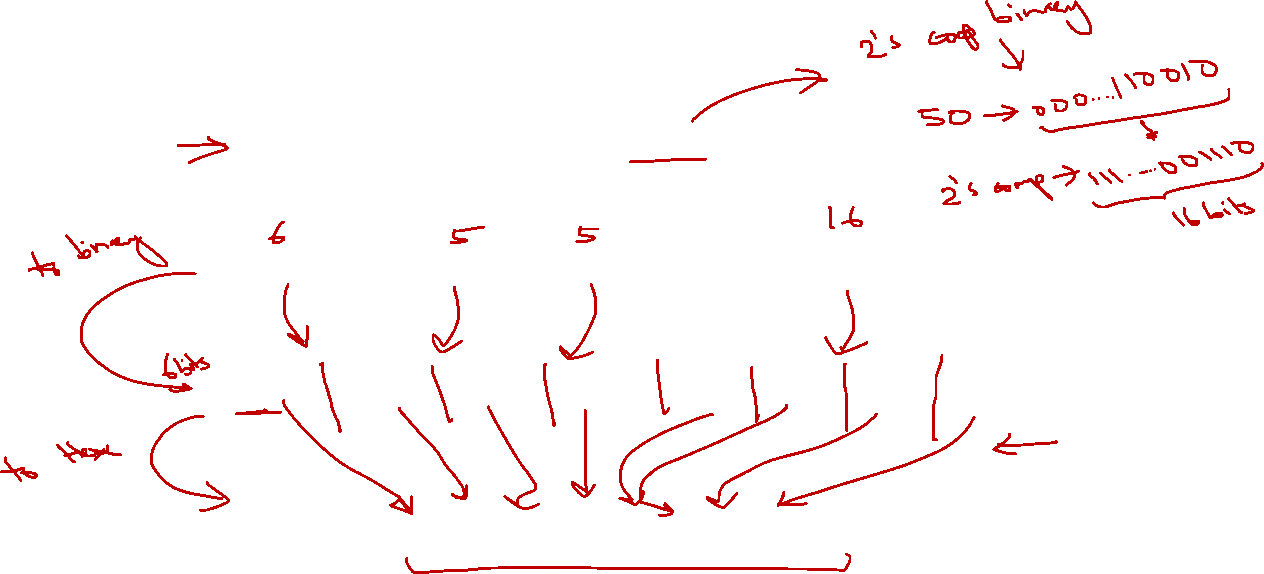 2's comp binary
50 → 000....110010
2's comp → 111....001110
16 bits
6 5 5 16
to binary
6 bits
to Hex